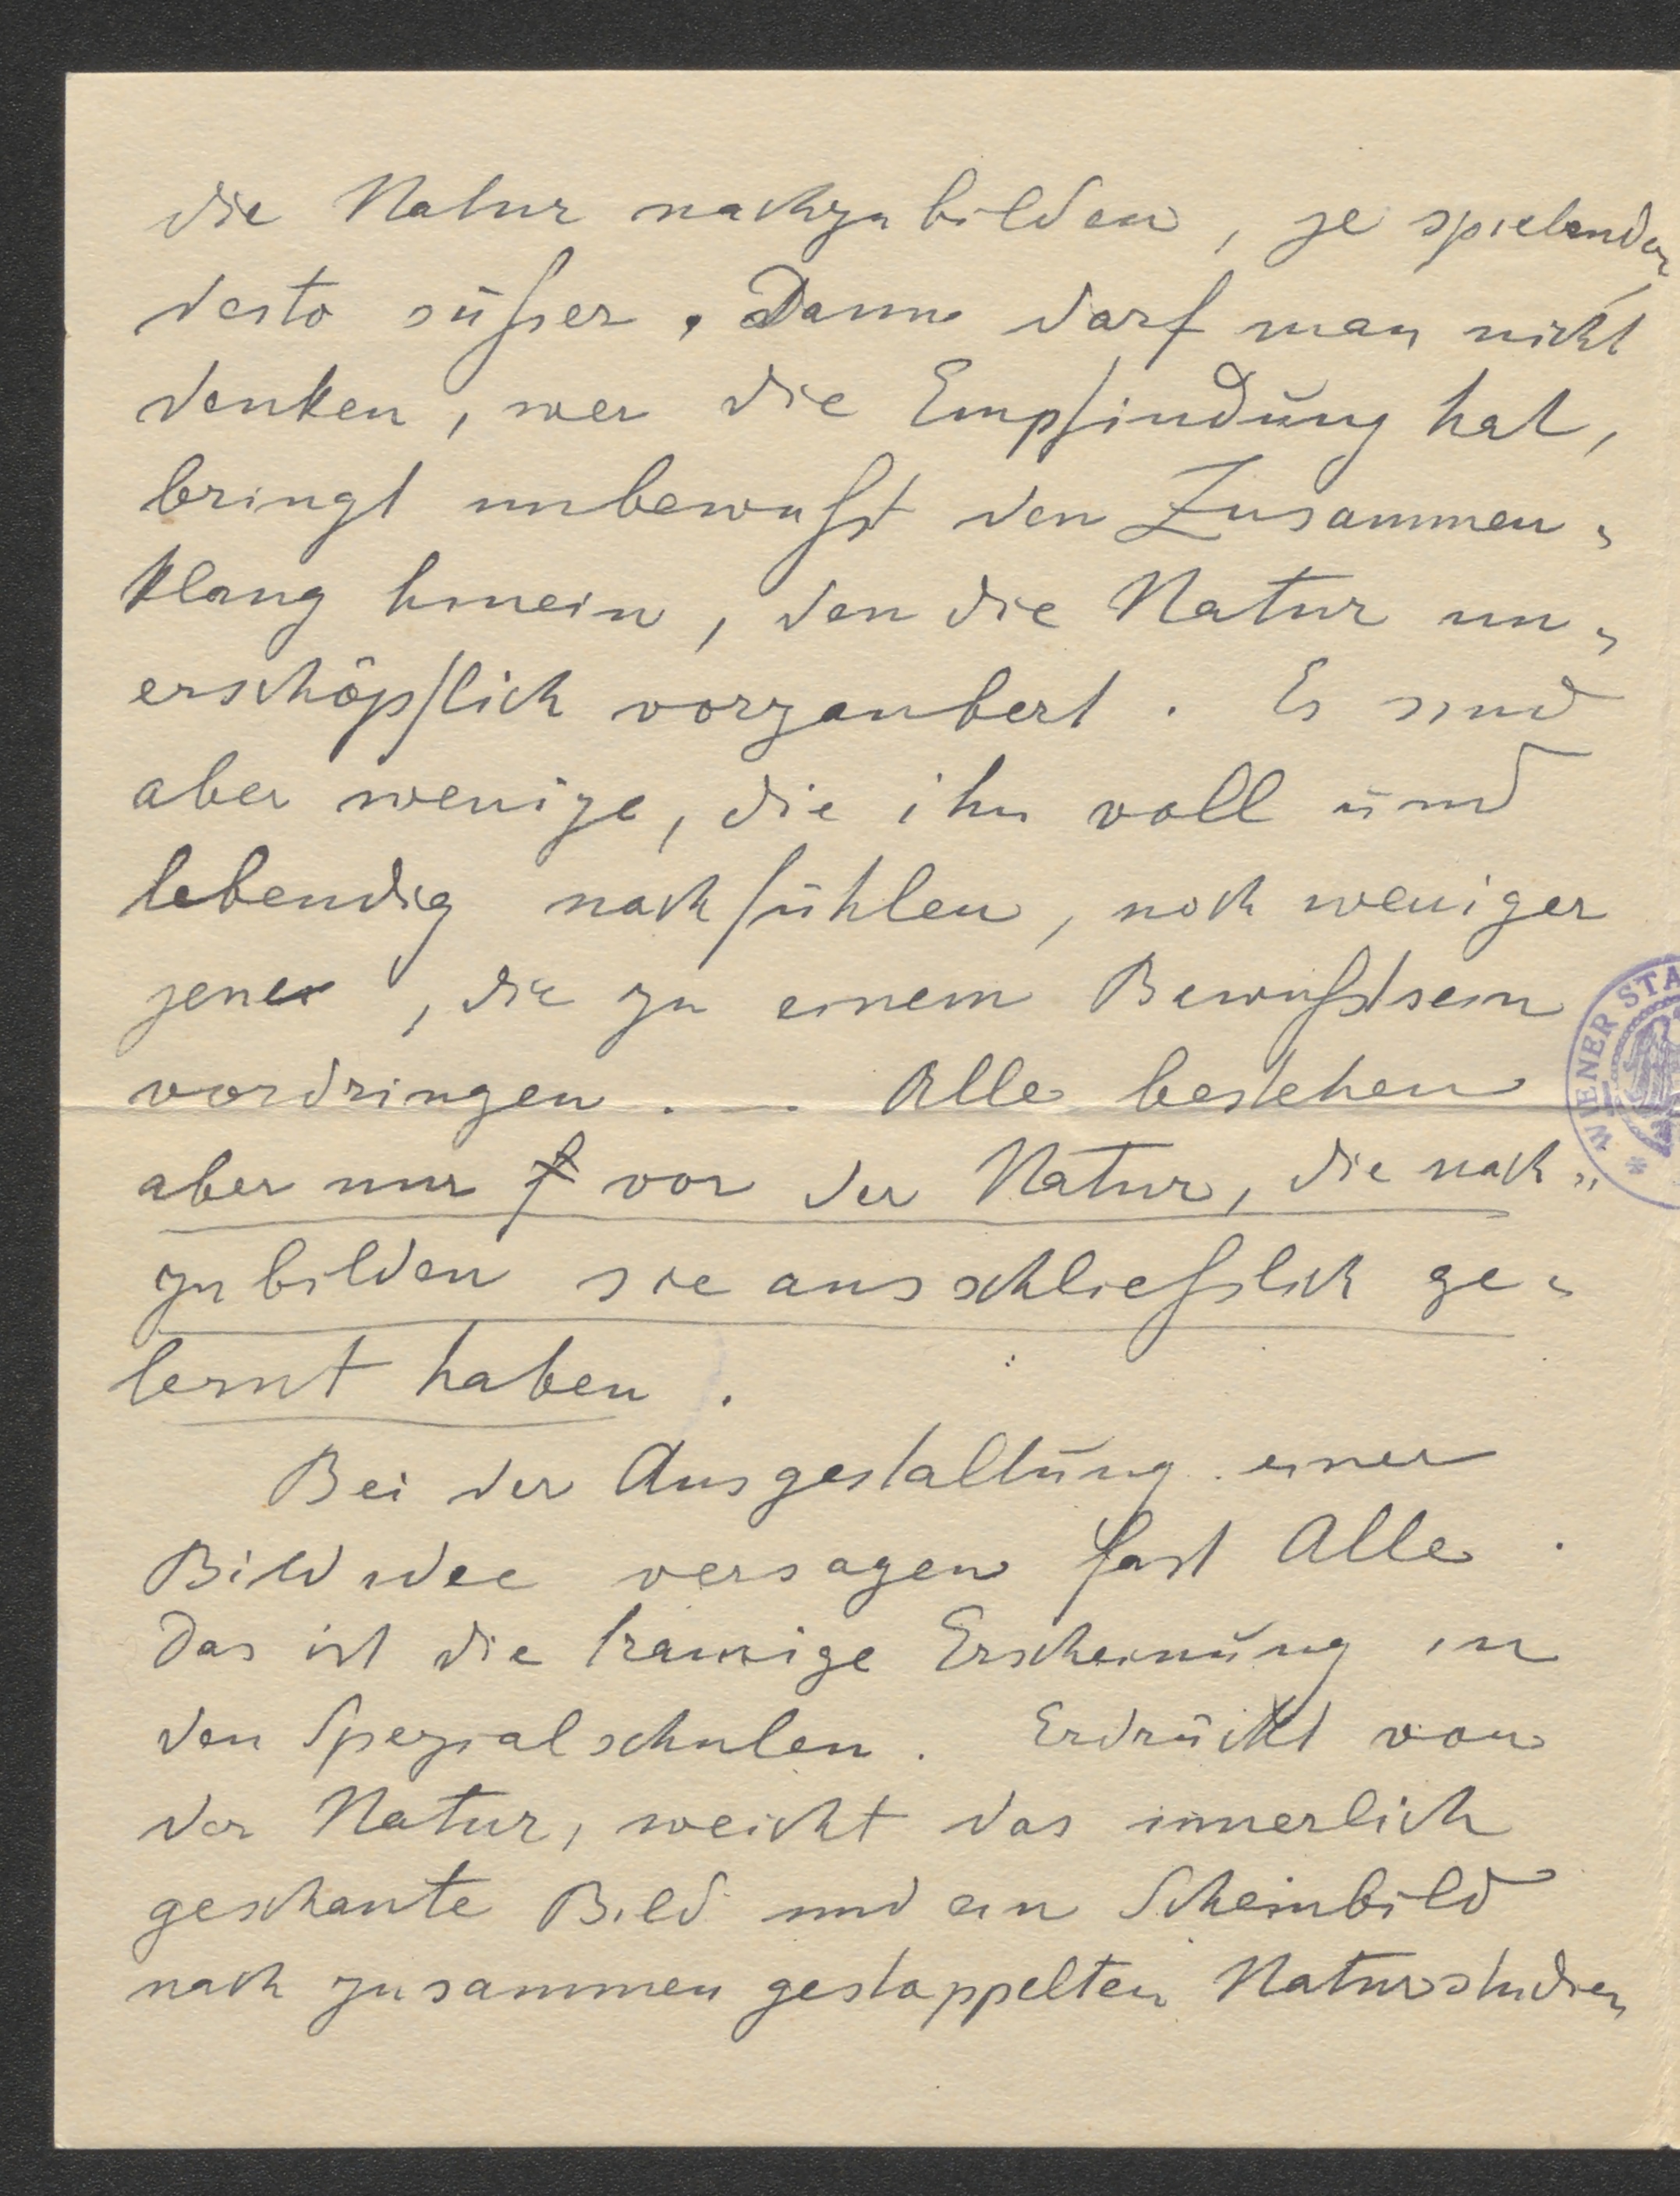 die Natur nachzubilden, je spielender,
desto süßer. Dann darf man nicht
denken, wer die Empfindung hat,
bringt unbewußt den Zusammen-
klang hinein, den die Natur un-
erschöpflich vorzaubert. Es sind
aber wenige, die ihn voll und
lebendig nachfühlen, noch weniger
jene, die zu einem Bewußtsein
vordringen. — Alle bestehen
aber nur vor der Natur, die nach-
zubilden sie ausschließlich ge-
lernt haben.
Bei der Ausgestaltung einer
Bildidee versagen fast Alle.
Das ist die traurige Erscheinung in
den Spezialschulen. Erdrückt von
der Natur, weicht das innerlich
geschaute Bild und ein Scheinbild
nach zusammen gestoppelten Naturstudien
* WIENER STA